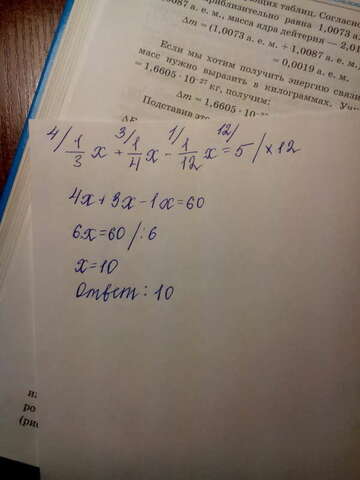 ующих таблиц. Согласно
приблизительно равна 1,0073 а.
0087 а. е. м., масса ядра дейтерия — 2,01
Δm = (1,0073 а. е. м. + 1,0087 а. е. м.
= 0,0019 а. е. м.
Если мы хотим получить энергию связи
масс нужно выразить в килограммах. Учи
= 1,6605 · 10⁻²⁷ кг, получим:
Δm = 1,6605 · 10
Подставив это
4/ 3/ 1/ 12/
1/3 x + 1/4 x - 1/12 x = 5 / ×12
4x+3x-1x=60
6x=60 /:6
x=10
Ответ: 10
на
ро
(рис